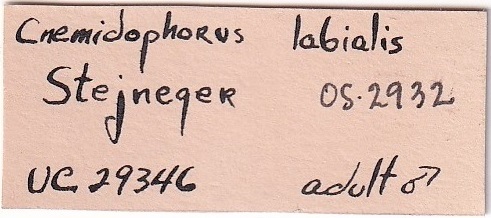 Cnemidophorus labialis
Stejneger OS·2932
UC 29346 adult ♂